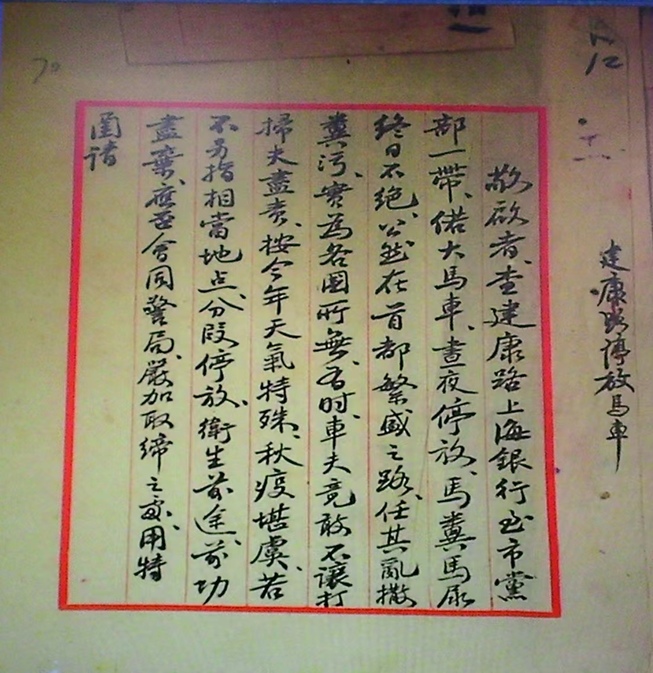 建康路停放馬車
敬啟者、查建康路上海銀行至市黨
部一帶、偌大馬車、晝夜停放、馬糞馬尿
終日不絕、公然在首都繁盛之路、任其亂撒
糞污、實為各國所無、有時、車夫竟敢不讓打
掃夫盡責、按今年天氣特殊、秋疫堪虞、若
不另指相當地点、分段停放、衛生前途、前功
盡棄、應否會同警局、嚴加取締之處、用特
函請